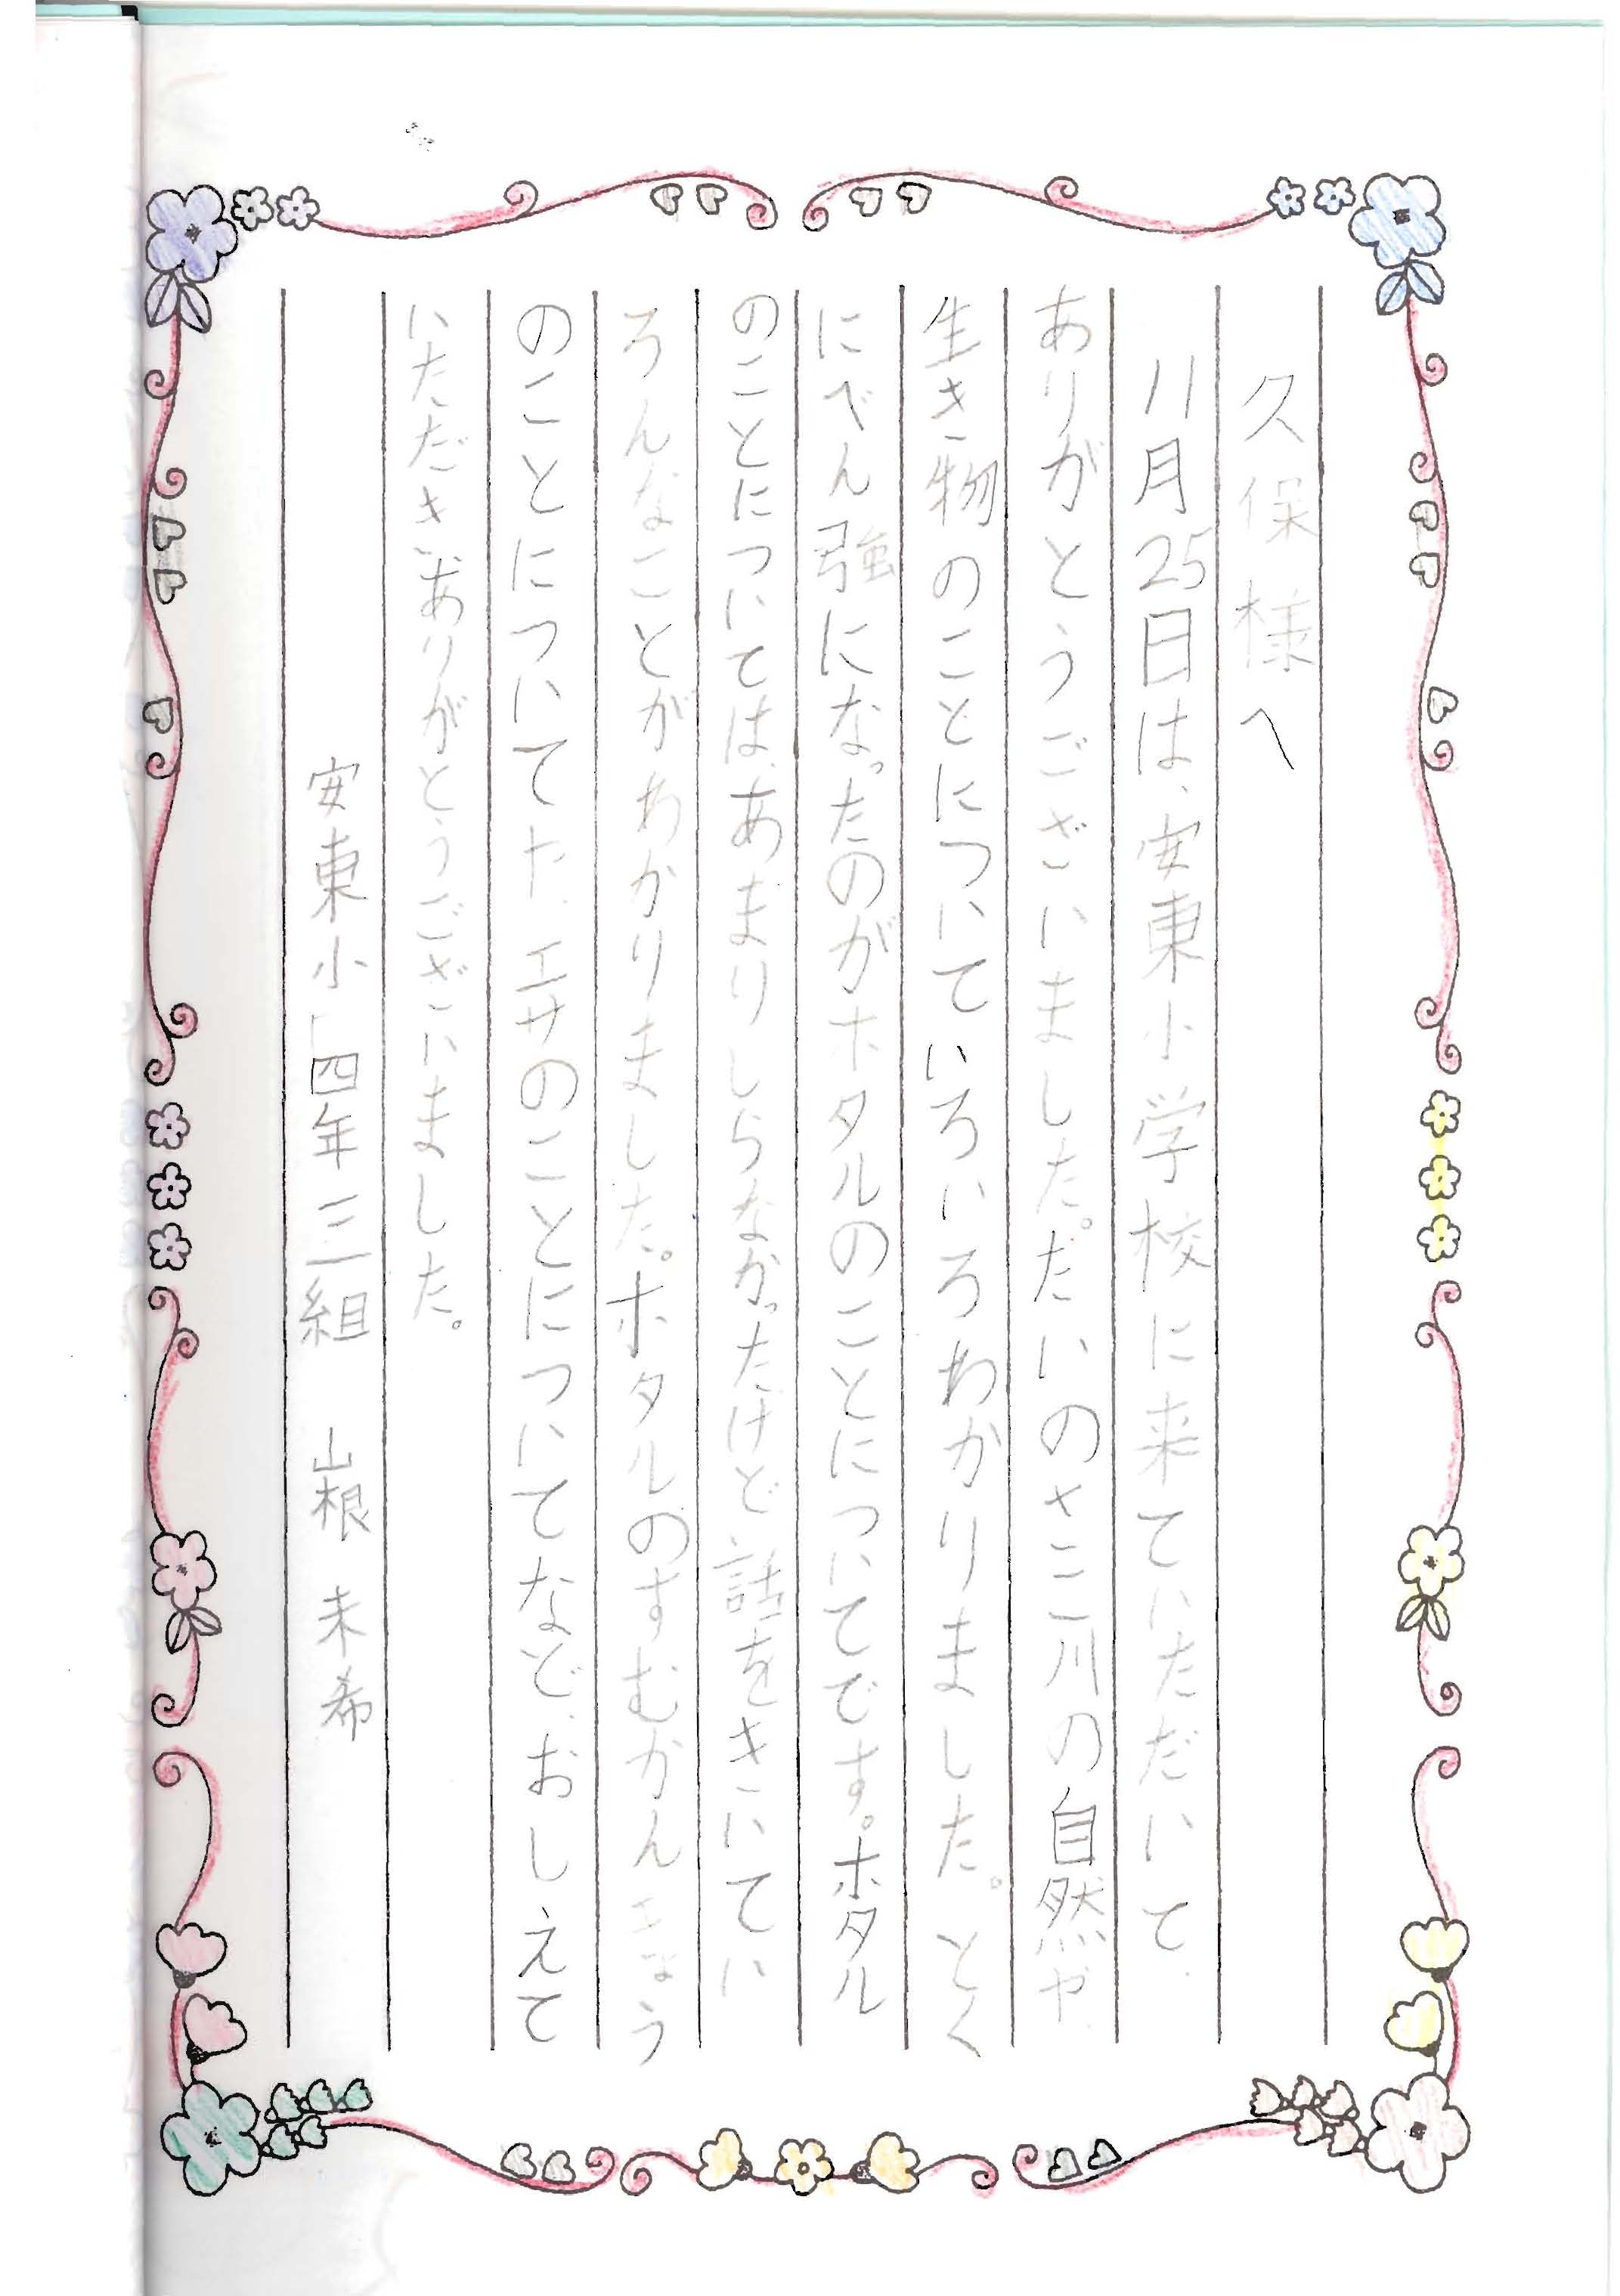 久保様へ
11月25日は、安東小学校に来ていただいて、
ありがとうございました。だいのさこ川の自然や、
生き物のことについていろいろわかりました。とく
にべん強になったのがホタルのことについてです。ホタル
のことについては、あまりしらなかったけど、話をきいてい
ろんなことがわかりました。ホタルのすむかんきょう
のことについてた、エサのことについてなど、おしえて
いただき、ありがとうございました。
安東小 四年三組 山根 未希